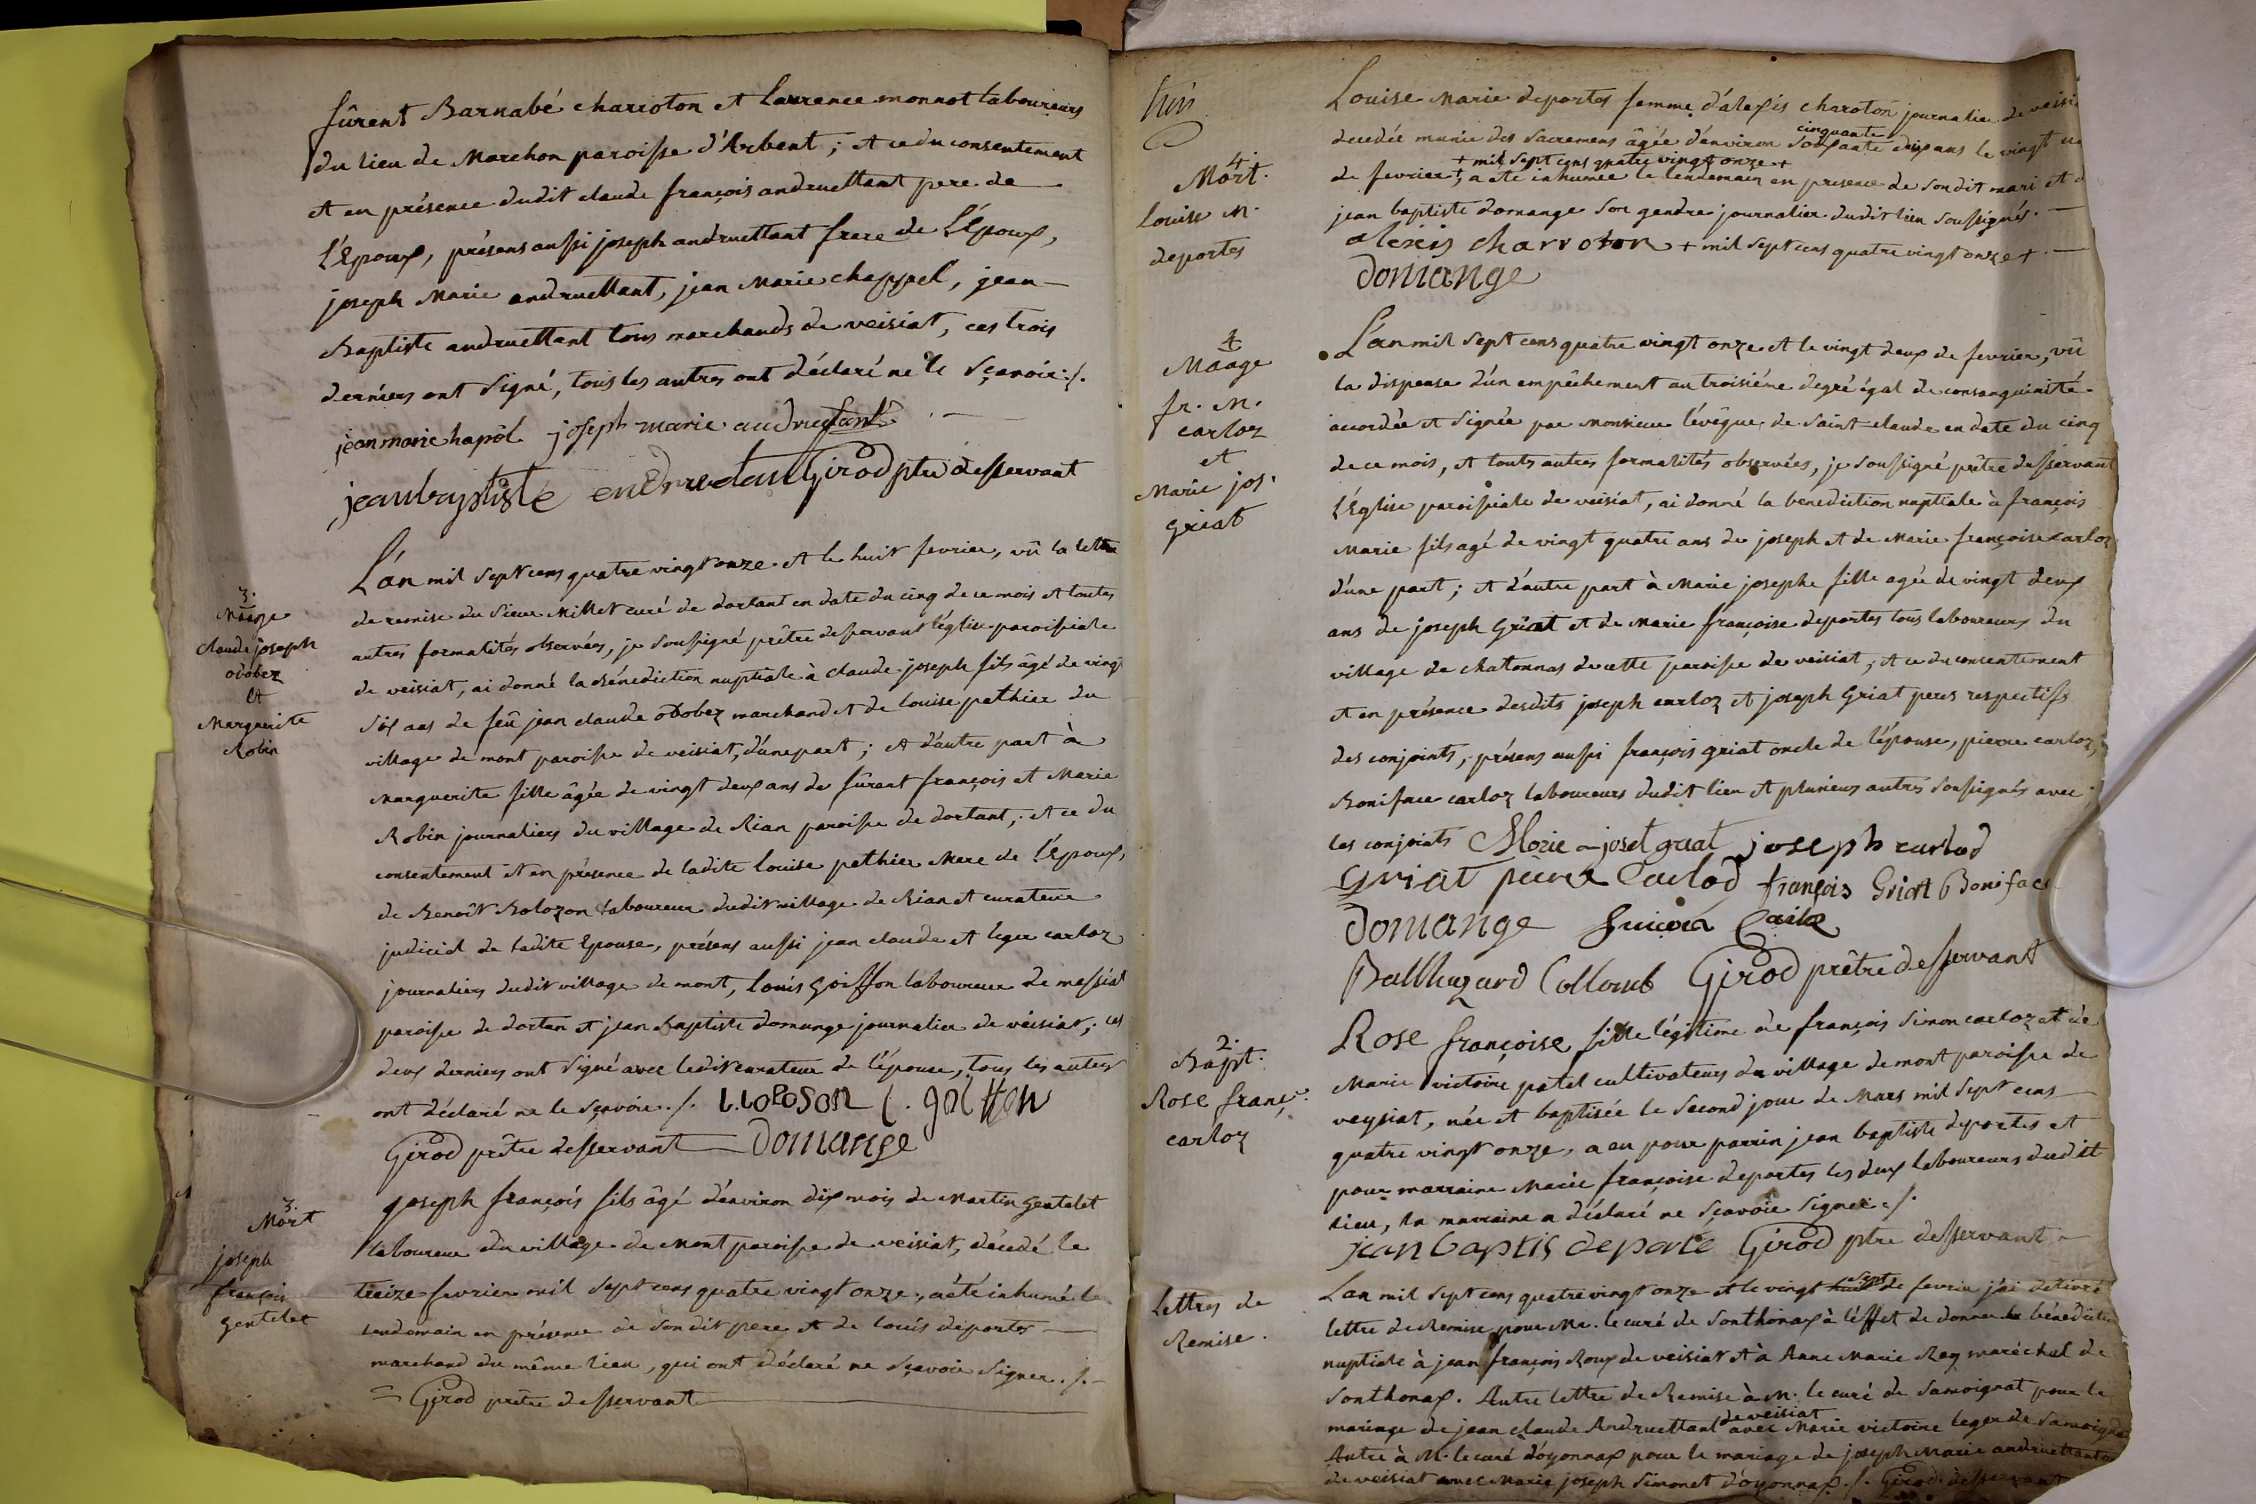 fûrent Barnabé charioton et laurence monnot laboureurs
du lieu de Marchon paroisse d'Arbent; et ce du consentement
et en présence dudit claude françois andruettant pere de
l'Époux, présens aussi joseph andruettant frere de l'Époux,
joseph Marie andruettant, jean Marie chappel, jean
Baptiste andruettant tous marchands de veisiat, ces trois
derniers ont signé, tous les autres ont déclaré ne le sçavoir ./.
jean marie hapôl joseph marie
jean baptiste Girod ptre desservant
3.
Mãage
claude joseph
obobez
et
Marguerite
Robin
L'an mil sept cens quatre vingt onze et le huit fevrier, vû la lettre
de remise du sieur Millet curé de dortant en date du cinq de ce mois et toutes
autres formalités observées, je soussigné prêtre desservant l'église paroissiale
de veisiat, ai donné la bénédiction nuptiale à claude joseph fils âgé de vingt
six ans de feû jean claude obobez marchand et de louise pethier du
village de mont paroisse de veisiat, d'une part; et d'autre part à
Marguerite fille âgée de vingt deux ans de fûrent françois et Marie
Robin journaliers du village de Rian paroisse de dortant; et ce du
consentement et en présence de ladite louise pethier Mere de l'Époux,
de Benoît Bolozon laboureur dudit village de Rian et curateur
judiciel de ladite Epouse, présens aussi jean claude et leger carloz
journaliers dudit village de mont, louis goiffon laboureur de messiat
paroisse de dortan et jean baptiste domange journalier de véisiat; ces
deux derniers ont signé avec ledit curateur de l'épouse, tous les autres
ont déclaré ne le sçavoir ./.
Girod prêtre desservant domange
3.
Mort
joseph
françois
gentelet
joseph françois fils âgé d'environ dix mois de Martin gentelet
laboureur du village de Mont paroisse de veisiat, décédé le
treize fevrier mil sept cens quatre vingt onze, a été inhumé le
lendemain en présence de son dit pere et de louis deportes
marchand du même lieu, qui ont déclaré ne sçavoir signer ./.
= Girod prêtre desservant
4.
Mort.
louise M.
deportes
Louise Marie deportes femme d'alexis charoton journalier de veisiat
decedée munie des sacremens âgée d'environ cinquante dix ans le vingt
de fevrier + mil sept cens quatre vingt onze +, a été inhumée le lendemain en presence de son dit mari et
jean baptiste domange son gendre journalier dudit lieu soussignés.
alexis charroton + mil sept cens quatre vingt onze +.
domange
4
Maage
fr. M.
carloz
et
Marie jos.
griat
L'an mil sept cens quatre vingt onze et le vingt deux de fevrier, vû
la dispense d'un empêchement au troisiéme degré égal de consanguinité
accordée et signée par Monsieur l'évêque de saint claude en date du cinq
de ce mois, et touts autres formalités observées, je soussigné prêtre desservant
l'Église paroissiale de veisiat, ai donné la benediction nuptiale à françois
Marie fils agé de vingt quatre ans de joseph et de Marie françoise carloz
d'une part; et d'autre part à Marie josephe fille agée de vingt deux
ans de joseph Griat et de Marie françoise deportes tous laboureurs du
village de chatonnas de cette paroisse de veisiat, et ce du consentement
et en présence desdits joseph carloz et joseph Griat peres respectifs
des conjoints, présens aussi françois griat oncle de l'épouse, pierre carloz,
Boniface carloz laboureurs dudit lieu et plusieurs autres soussignés avec
les conjoints joseph carlod
griat françois Griat Boniface
domange
Balthazard Collomb Girod prêtre desservant
2.
Bapt.
Rose franç.
carloz
Rose françoise fille légitime de françois simon carloz et de
Marie victoire patel cultivateurs du village de mont paroisse de
veysiat, née et baptisée le second jour de Mars mil sept cens
quatre vingt onze, a eu pour parrin jean baptiste deportes et
pour marraine Marie françoise deportes les deux laboureurs dudit
lieu, la marraine a déclaré ne sçavoir signer ./.
jean baptis deporte Girod ptre desservant
lettres de
Remise.
L'an mil sept cens quatre vingt onze et le vingt sept de fevrier j'ai delivré
lettre de Remise pour Mr. le curé de sonthonax à l'effet de donner la bénédiction
nuptiale à jean françois Roux de veisiat et à Anne Marie Rey maréchal de
sonthonax. Autre lettre de Remise à M. le curé de samoignat pour le
mariage de jean claude Andruettant de veisiat avec Marie victoire leger de samoignat
Autre à M. le curé d'oyonnax pour le mariage de joseph Marie andruettant
de veisiat avec Marie joseph simonet d'oyonnax ./. Girod desservant